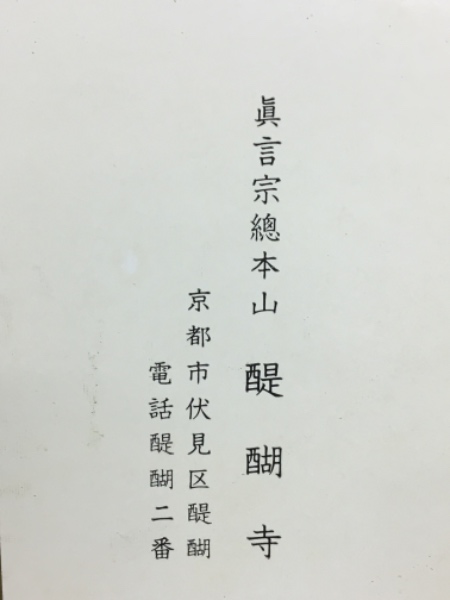 眞言宗總本山 醍醐寺
京都市伏見区醍醐
電話醍醐二番